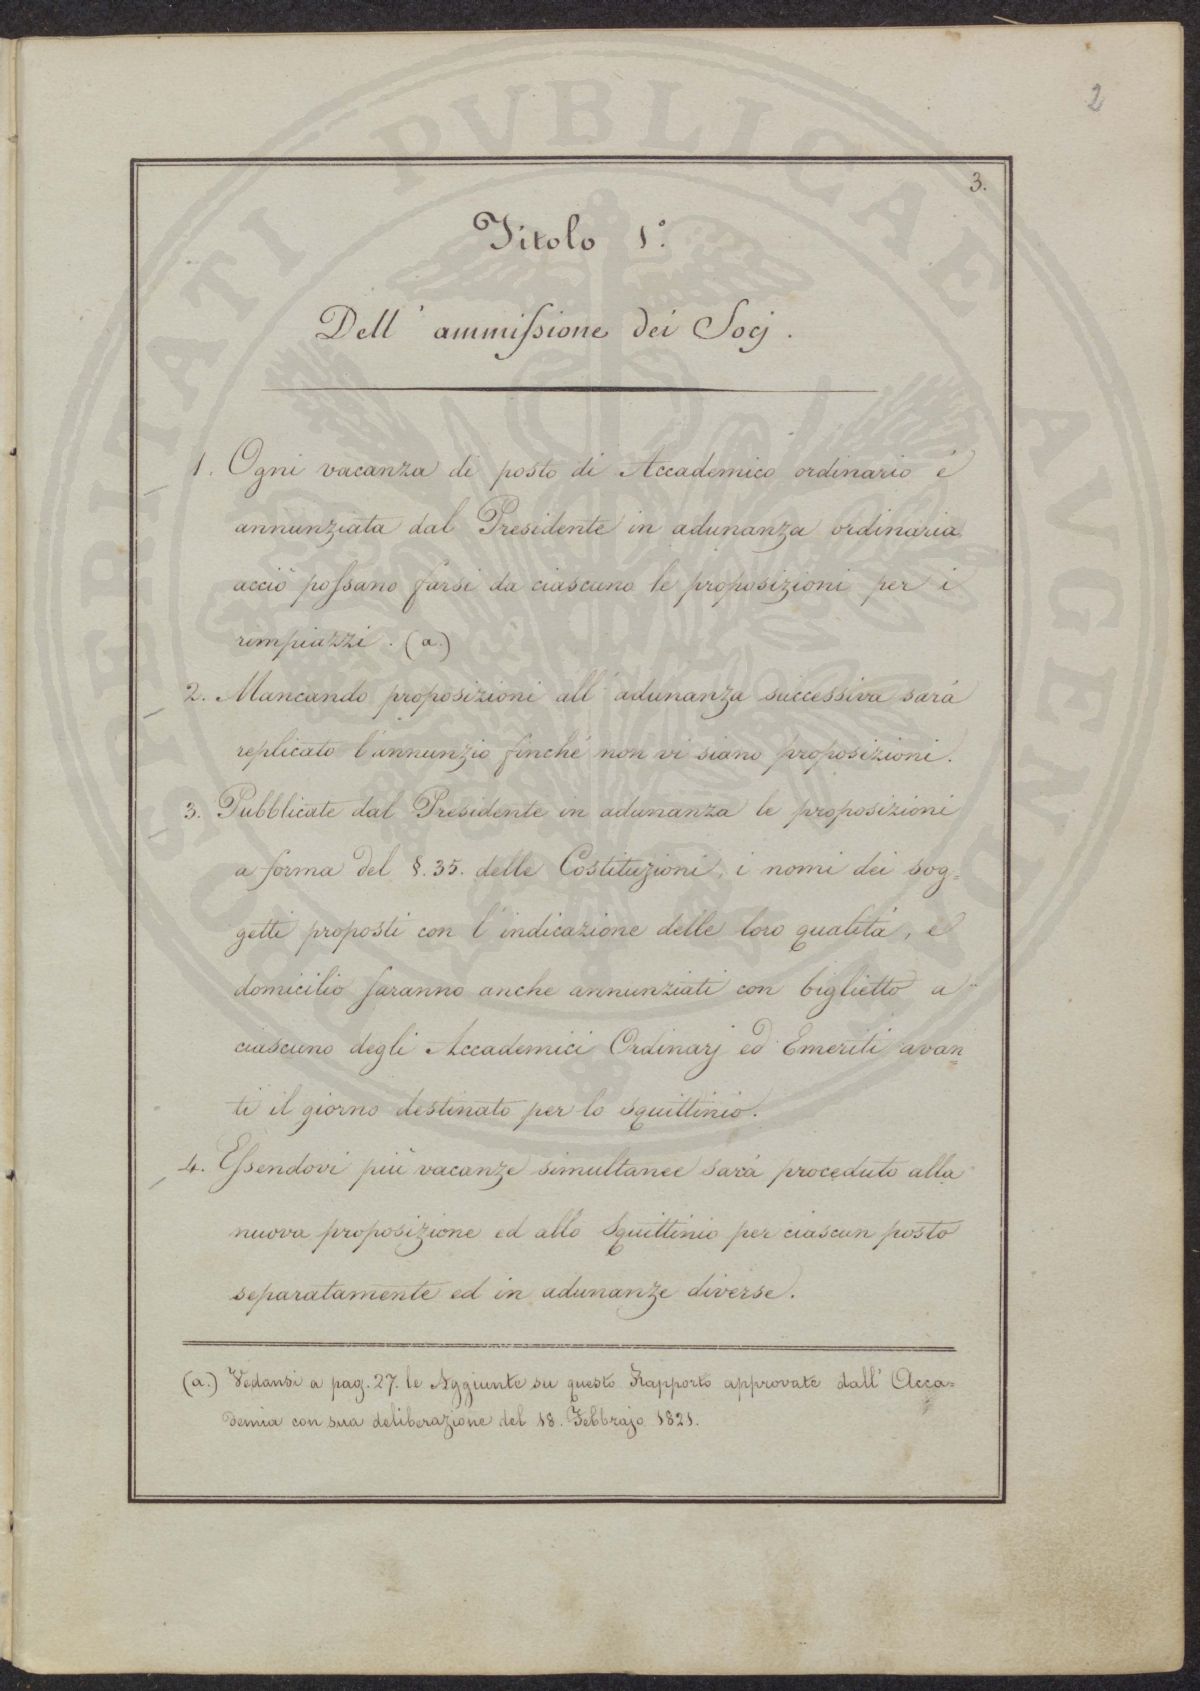 2
3.
Titolo 1.°
Dell' ammissione dei Socj.
1. Ogni vacanza di posto di Accademico ordinario è
annunziata dal Presidente in adunanza ordinaria
acciò possano farsi da ciascuno le proposizioni per i
rimpiazzi. (a.)
2. Mancando proposizioni all' adunanza successiva sarà
replicato l'annunzio finchè non vi siano proposizioni.
3. Pubblicate dal Presidente in adunanza le proposizioni
a forma del §. 35. delle Costituzioni, i nomi dei sog=
getti proposti con l' indicazione delle loro qualità, e
domicilio saranno anche annunziati con biglietto a
ciascuno degli Accademici Ordinarj ed Emeriti avan=
ti il giorno destinato per lo squittinio.
4. Essendovi più vacanze simultanee sarà proceduto alla
nuova proposizione ed allo squittinio per ciascun posto
separatamente ed in adunanze diverse.
(a.) Vedansi a pag. 27. le Aggiunte su questo Rapporto approvate dall' Acca=
demia con sua deliberazione del 18. Febbrajo 1821.
PROSPERITATI PVBLICAE AVGENDAE